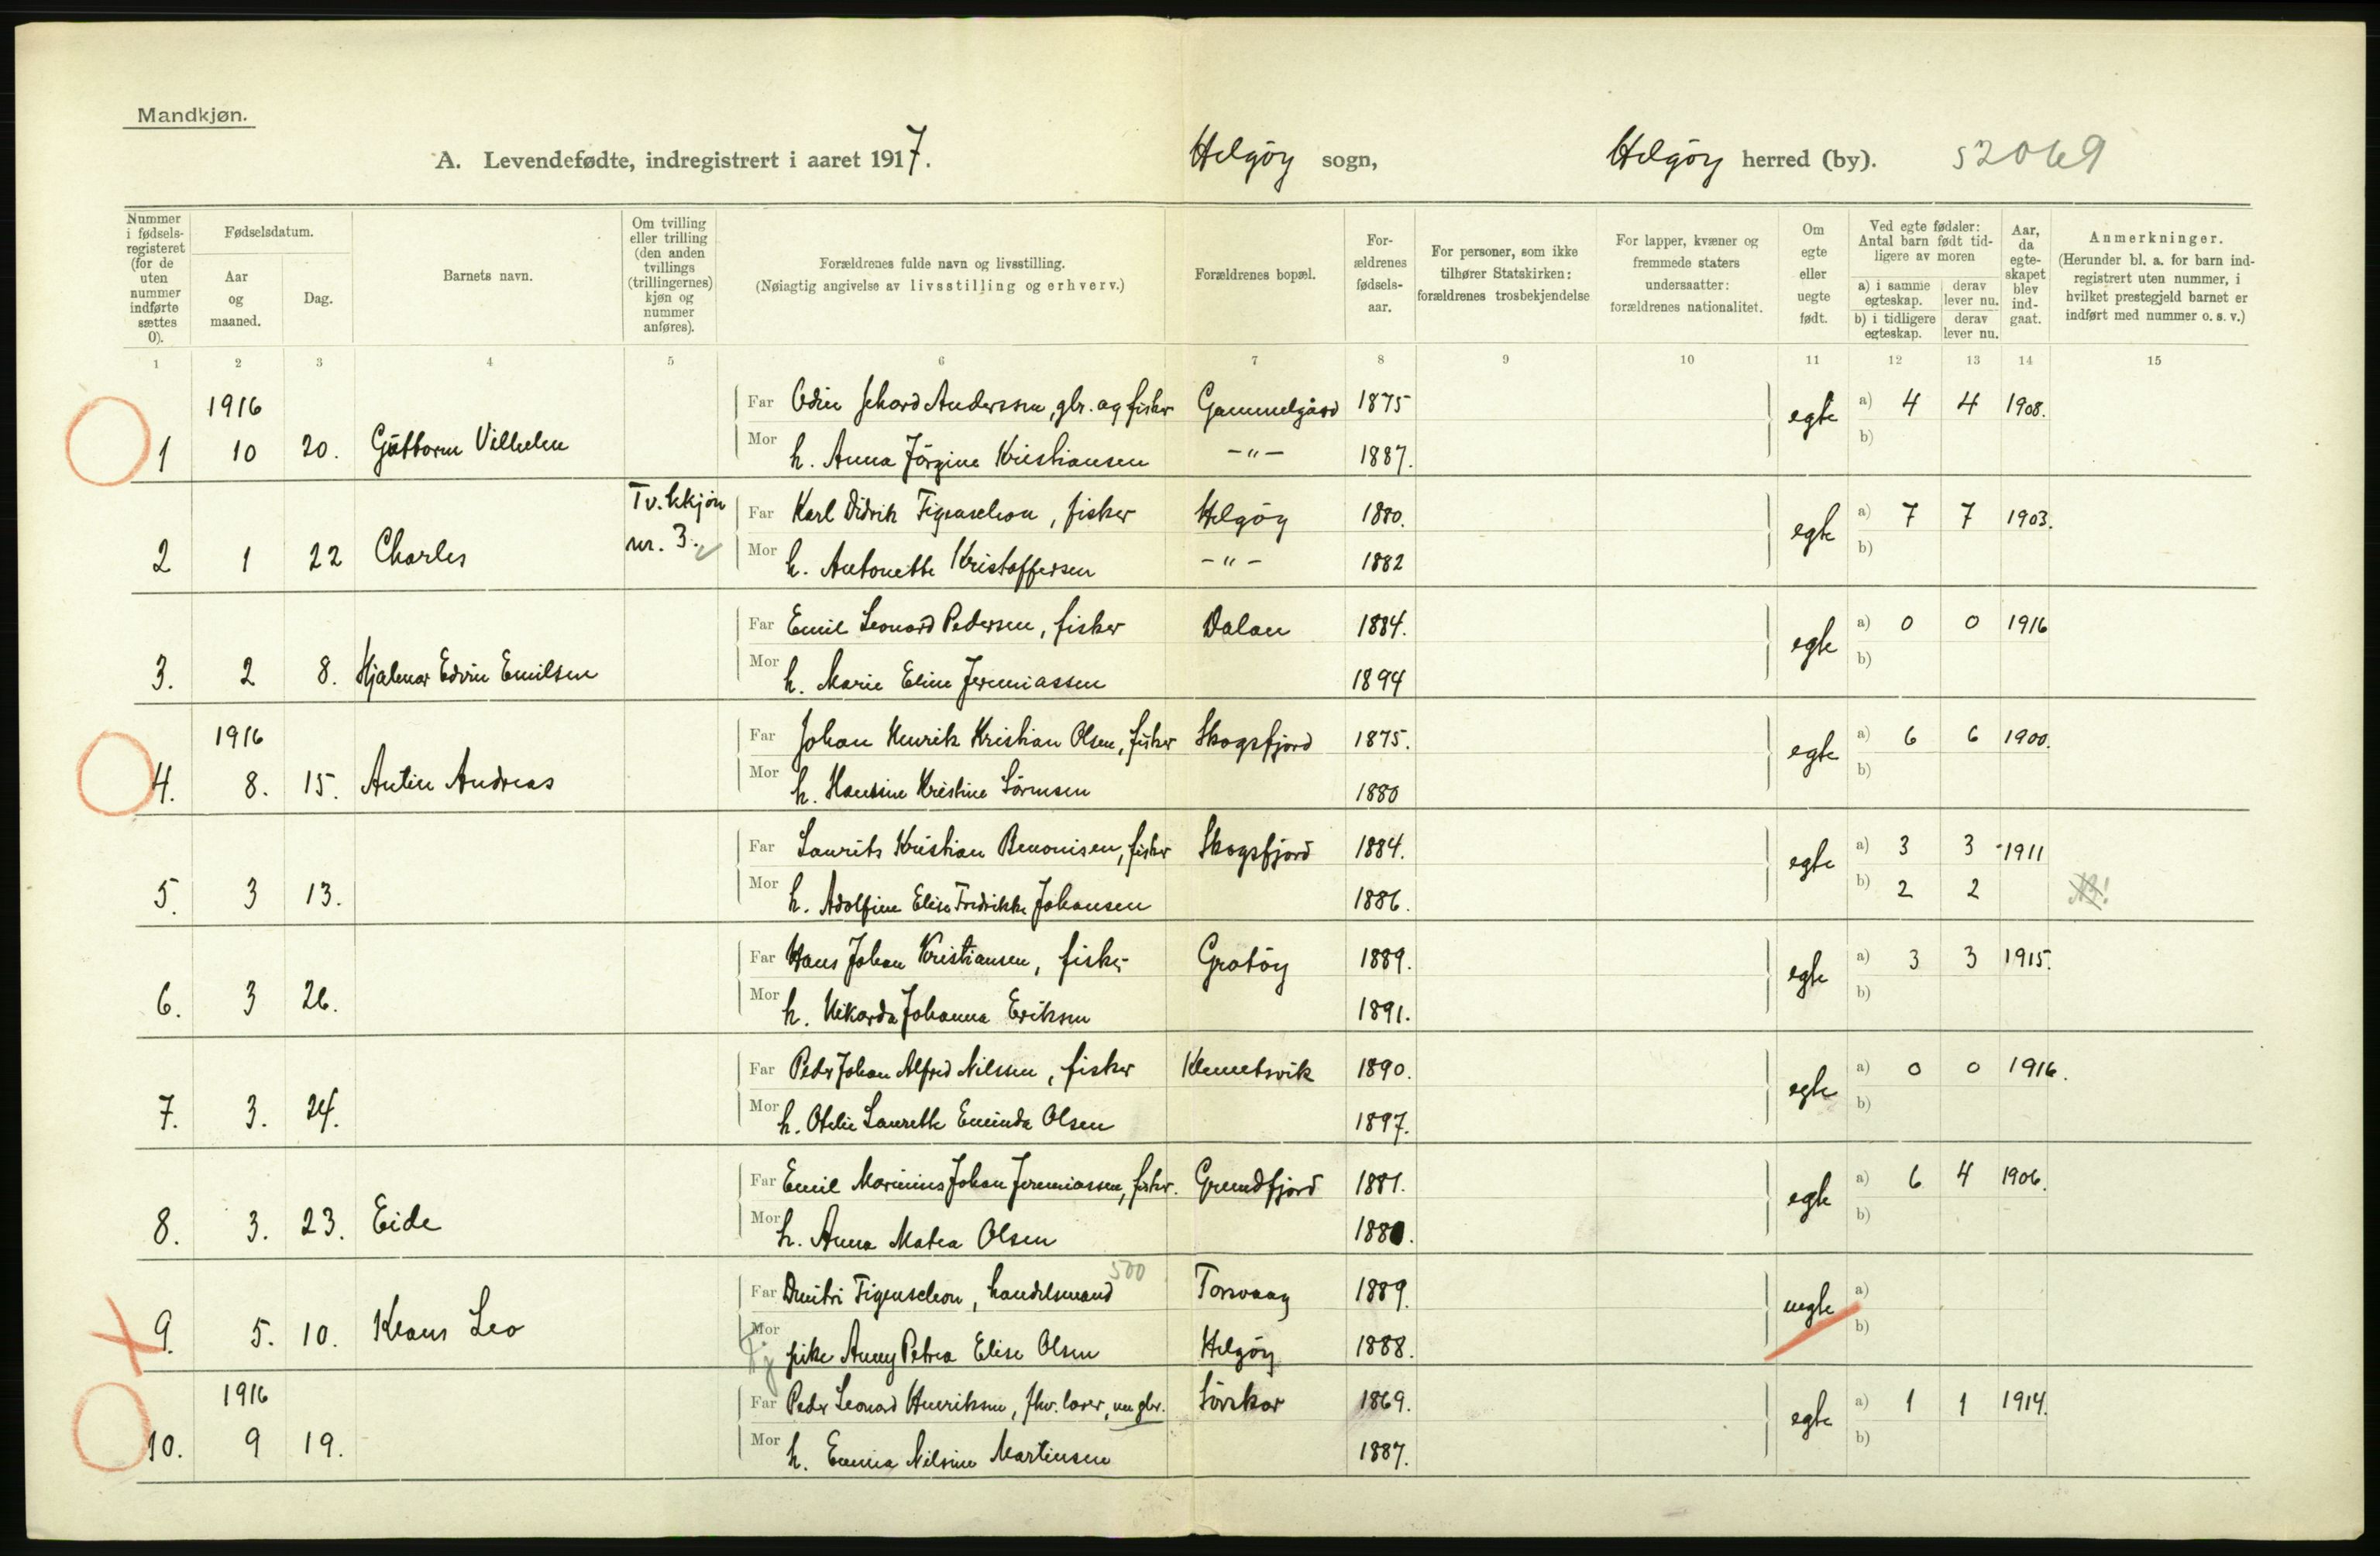 Mandkjøn.
A. Levendefødte, indregistrert i aaret 1917. Helgöy sogn, Helgöy herred (by). 52069
Nummer i fødsels-registeret (for de uten nummer indførte sættes 0).
Fødselsdatum.
Aar og maaned.
Dag.
Barnets navn.
Om tvilling eller trilling (den anden tvillings (trillingernes) kjøn og nummer anføres).
Forældrenes fulde navn og livsstilling.
(Nøiagtig angivelse av livsstilling og erhverv.)
Forældrenes bopæl.
For-ældrenes fødsels-aar.
For personer, som ikke tilhører Statskirken: forældrenes trosbekjendelse
For lapper, kvæner og fremmede staters undersaatter: forældrenes nationalitet.
Om egte eller uegte født.
Ved egte fødsler: Antal barn født tid-ligere av moren
a) i samme egteskap. derav lever nu.
b) i tidligere egteskap. derav lever nu.
Aar, da egte-skapet blev ind-gaat.
Anmerkninger.
(Herunder bl. a. for barn ind-registrert uten nummer, i hvilket prestegjeld barnet er indført med nummer o. s. v.)
1 2 3 4 5 6 7 8 9 10 11 12 13 14 15
1916 Far Odin Jehard Anderssen, gbr. og fisker Gammelgård 1875 egte a) 4 4 1908.
1 10 20. Guttorm Vilhelm Mor h. Anna Jörgine Kristiansen -"- 1887. b)
Tv. kkjön Far Karl Didrik Figenschou, fisker Helgöy 1880. egte a) 7 7 1903.
2 1 22 Charles nr. 3. Mor h. Antonette Kristoffersen -"- 1882 b)
Far Emil Leonard Pedersen, fisker Dalan 1884. egte a) 0 0 1916
3. 2 8. Hjalmar Edvin Emilsen Mor h. Marie Eline Jeremiassen 1894 b)
1916 Far Johan Henrik Kristian Olsen, fisker Skogsfjord 1875. egte a) 6 6 1900.
4. 8. 15. Antin Andreas Mor h. Hansine Kristine Sörensen 1880 b)
Far Laurits Kristian Benonisen, fisker Skogsfjord 1884. egte a) 3 3 1911
5. 3 13. Mor h. Adolfine Elise Fredrikke Johansen 1886. b) 2 2
Far Hans Johan Kristiansen, fisker Grotöy 1889. egte a) 3 3 1915.
6. 3 26. Mor h. Hikarda Johanna Eriksen 1891. b)
Far Peder Johan Alfred Nilssen, fisker Klemetsvik 1890. egte a) 0 0 1916.
7. 3. 24. Mor h. Otelie Laurette Eminda Olsen 1897. b)
Far Emil Marinius Johan Jeremiassen, fisker. Grundfjord 1881. egte a) 6 4 1906.
8. 3. 23. Eide Mor h. Anna Matea Olsen 1880. b)
500
Far Dmitri Figenschou, handelsmand Torsvaag 1889. uegte a)
9. 5. 10. Klaus Leo Mor pike Anny Petrea Elise Olsen Helgöy 1888. b)
1916 Far Peder Leonard Henriksen, fhv. lærer, nu gbr. Sörskar 1869. egte a) 1 1 1914.
10. 9 19. Mor h. Emma Nilsine Martinsen 1887. b)